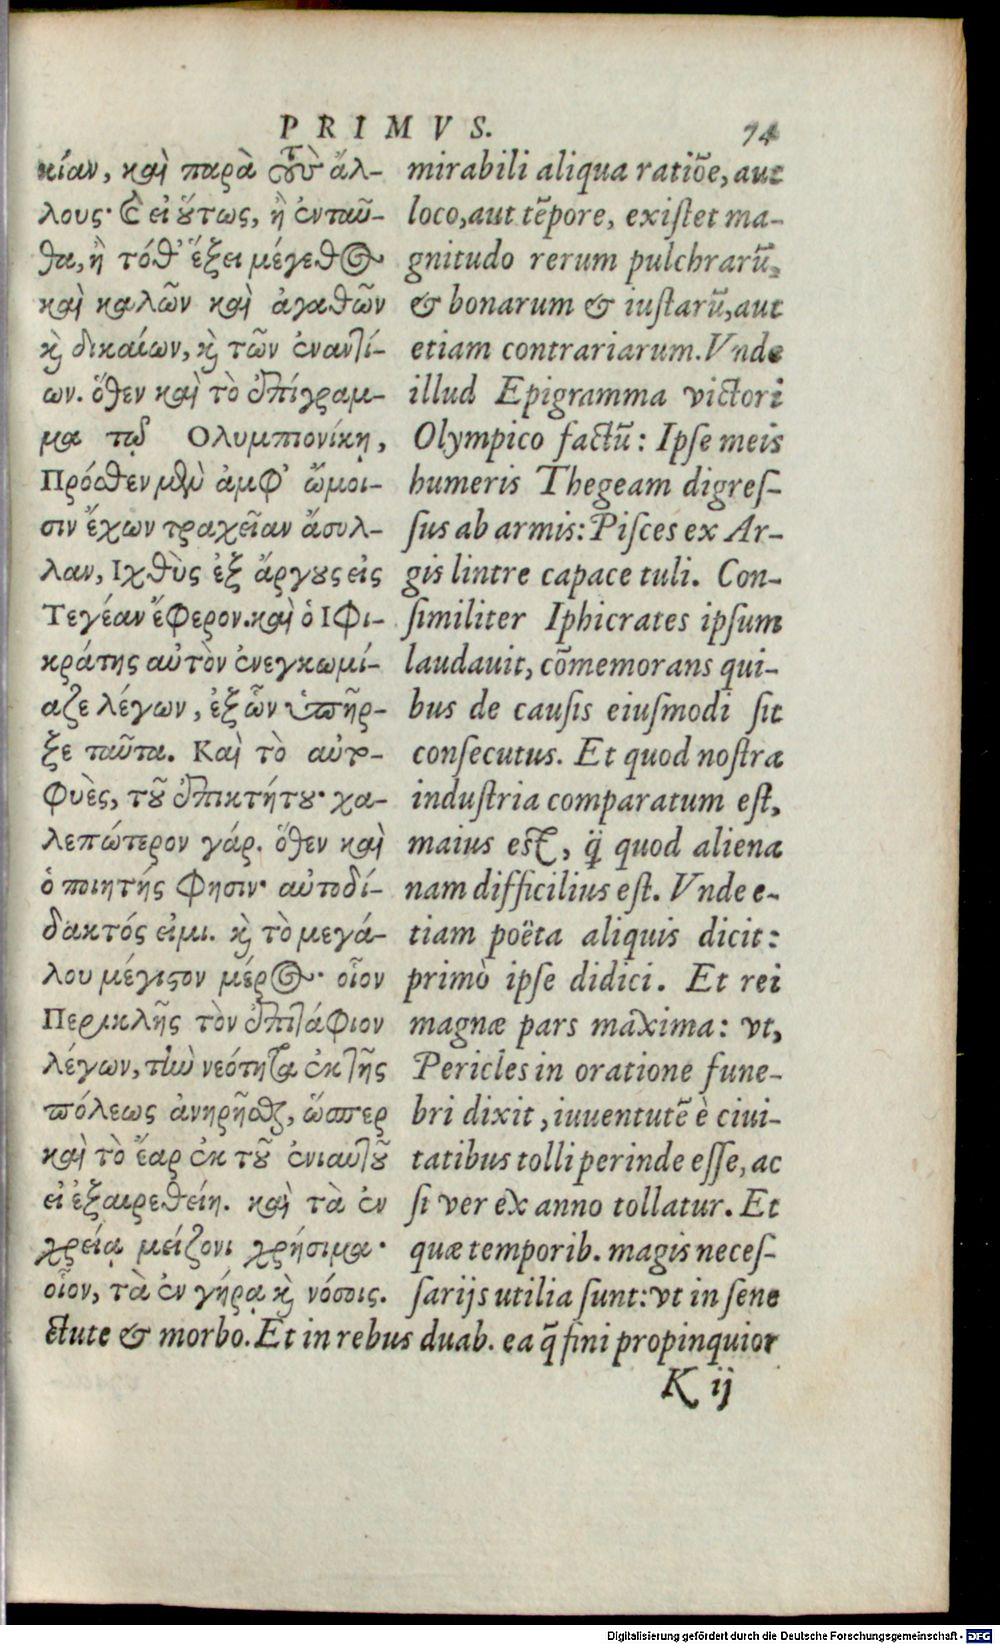 PRIMVS.
74
κίαν, καὶ παρὰ τοὺς ἄλ-
λους· καὶ εἰ οὕτως, ἢ ἐνταῦ-
θα, ἢ τόθ' ἕξει μέγεθος
καὶ καλῶν καὶ ἀγαθῶν
καὶ δικαίων, καὶ τῶν ἐναντί-
ων. ὅθεν καὶ τὸ ἐπίγραμ-
μα τῷ Ολυμπιονίκῃ,
Πρόσθεν μὲν ἀμφ' ὤμοι-
σιν ἔχων τραχεῖαν ἄσυλ-
λαν, Ιχθὺς ἐξ ἄργους εἰς
Τεγέαν ἔφερον. καὶ ὁ Ιφι-
κράτης αὐτὸν ἐνεγκωμί-
αζε λέγων, ἐξ ὧν ὑπῆρ-
ξε ταῦτα. Καὶ τὸ αὐτο-
φυὲς, τοῦ ἐπικτήτου· χα-
λεπώτερον γάρ. ὅθεν καὶ
ὁ ποιητής φησιν· αὐτοδί-
δακτός εἰμι. καὶ τὸ μεγά-
λου μέγιστον μέρος· οἷον
Περικλῆς τὸν ἐπιτάφιον
λέγων, τὴν νεότητα ἐκ τῆς
πόλεως ἀνηρῆσθαι, ὥσπερ
καὶ τὸ ἔαρ ἐκ τοῦ ἐνιαυτοῦ
εἰ ἐξαιρεθείη. καὶ τὰ ἐν
χρείᾳ μείζονι χρήσιμα·
οἷον, τὰ ἐν γήρᾳ καὶ νόσοις.
mirabili aliqua ratiõe, aut
loco, aut tẽpore, existet ma-
gnitudo rerum pulchrarũ,
& bonarum & iustarũ, aut
etiam contrariarum. Vnde
illud Epigramma victori
Olympico factũ: Ipse meis
humeris Thegeam digres-
sus ab armis: Pisces ex Ar-
gis lintre capace tuli. Con-
similiter Iphicrates ipsum
laudauit, cõmemorans qui-
bus de causis eiusmodi sit
consecutus. Et quod nostra
industria comparatum est,
maius est, q̃ quod aliena
nam difficilius est. Vnde e-
tiam poëta aliquis dicit:
primò ipse didici. Et rei
magnæ pars maxima: vt,
Pericles in oratione fune-
bri dixit, iuuentutẽ è ciui-
tatibus tolli perinde esse, ac
si ver ex anno tollatur. Et
quæ temporib. magis neces-
sarijs utilia sunt: vt in sene
ctute & morbo. Et in rebus duab. ea q̃ fini propinquior
K ij
Digitalisierung gefördert durch die Deutsche Forschungsgemeinschaft - DFG